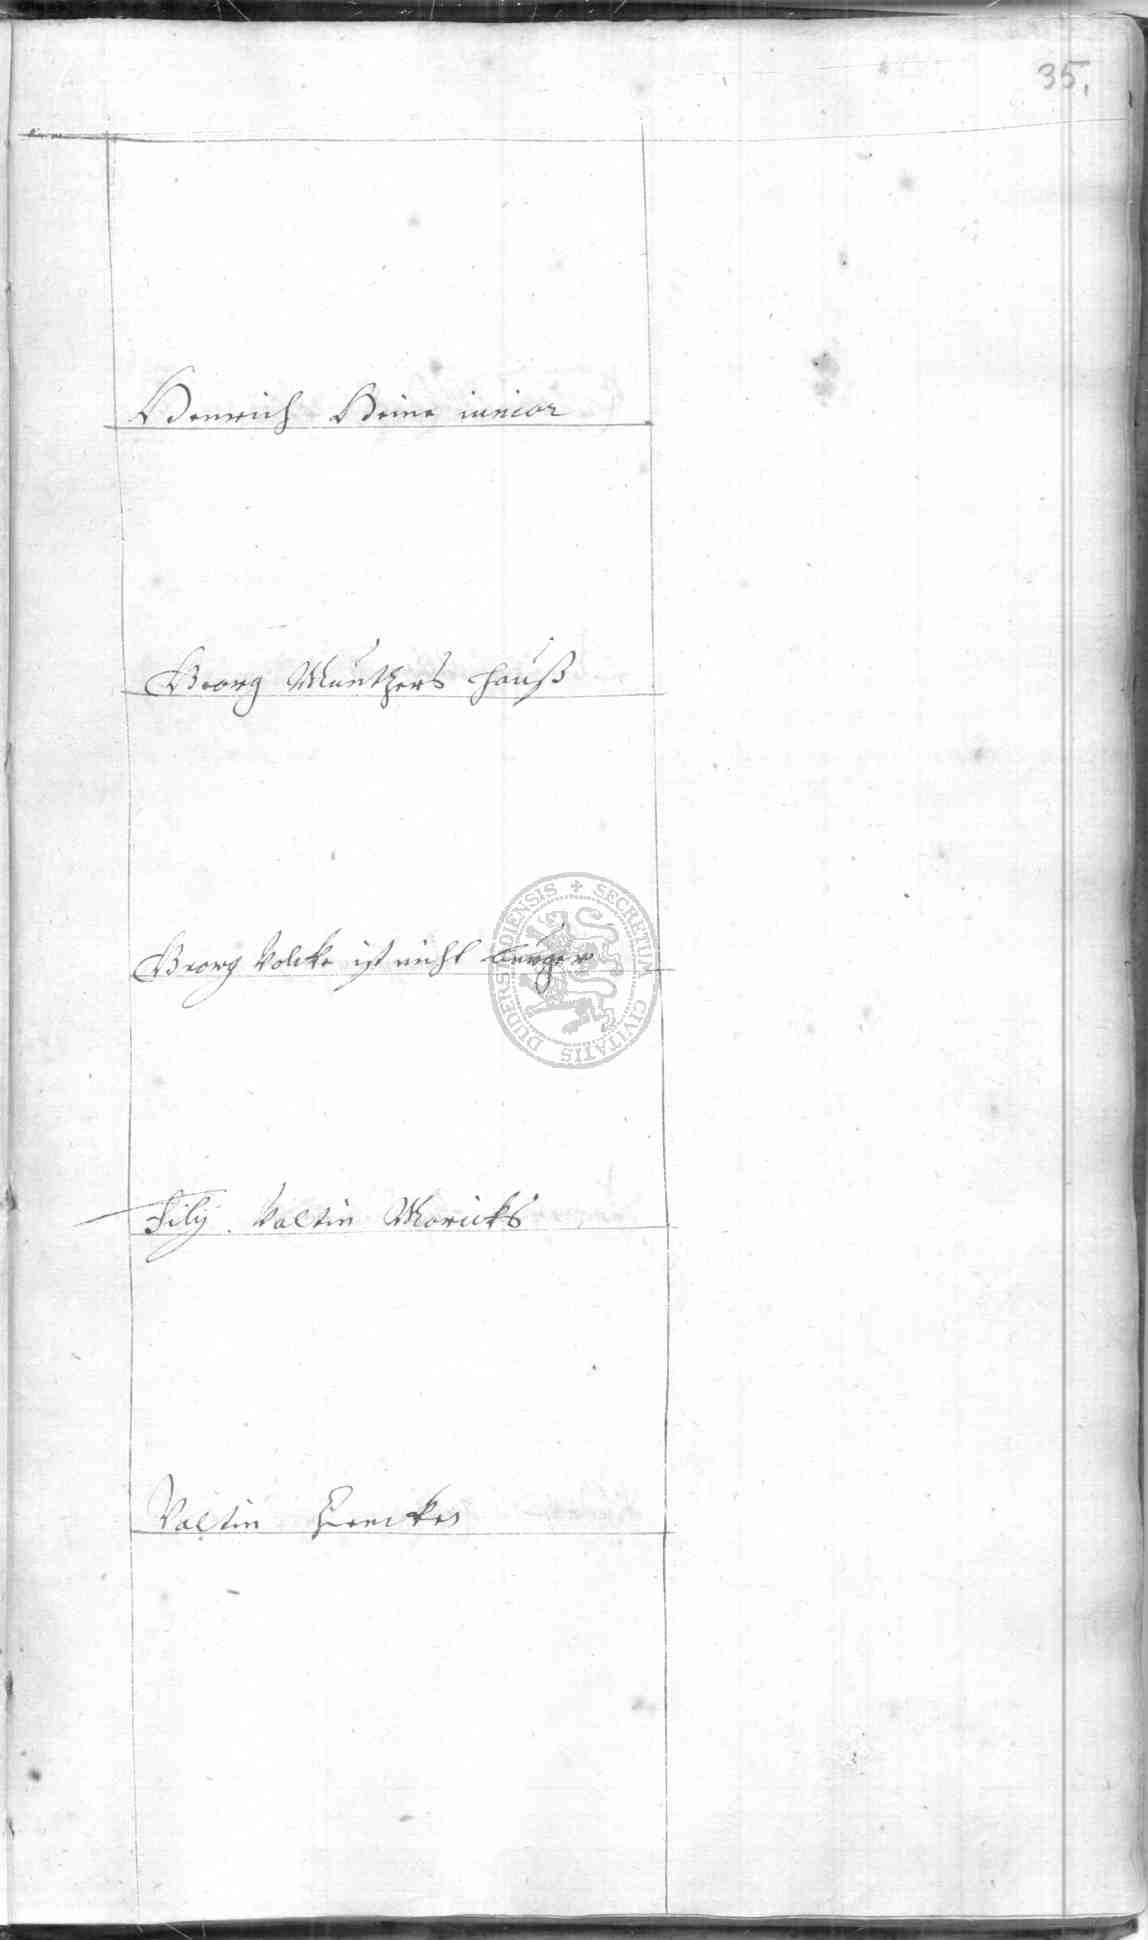 35.
Henrich Heine iunior
Georg Munthers hauß
Georg Volcke ist nicht burger
SECRETUM CIVITATIS DUDERSTADIENSIS
Filij Valtin Moricks
Valtin